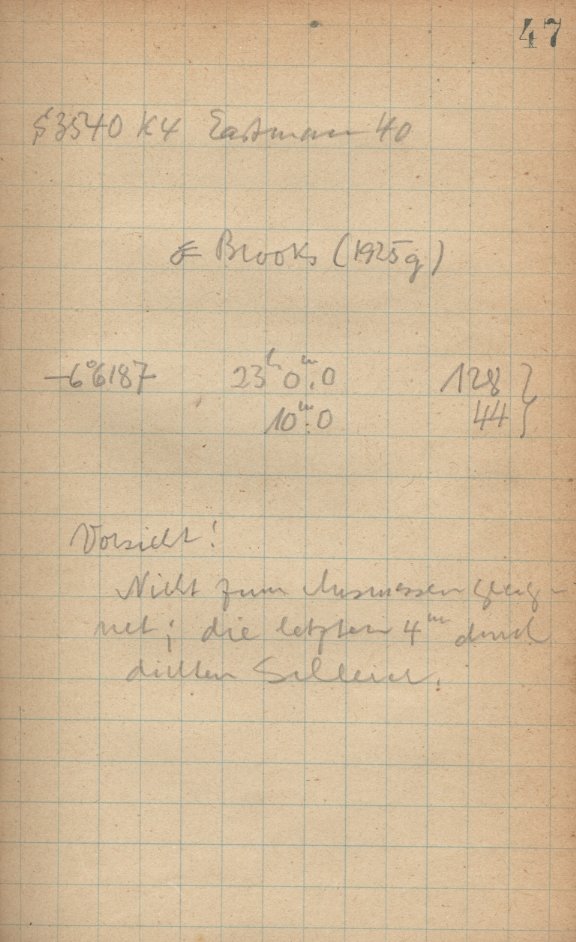 47
§3540 K4 Eastman 40
Brooks (1925g)
-6°6187 23ʰ 0ᵐ.0 128 }
10ᵐ.0 44 }
Vorsicht!
Nicht zum Ausmessen geeig-
net; die letzten 4ᵐ durch
dichten Schleier.